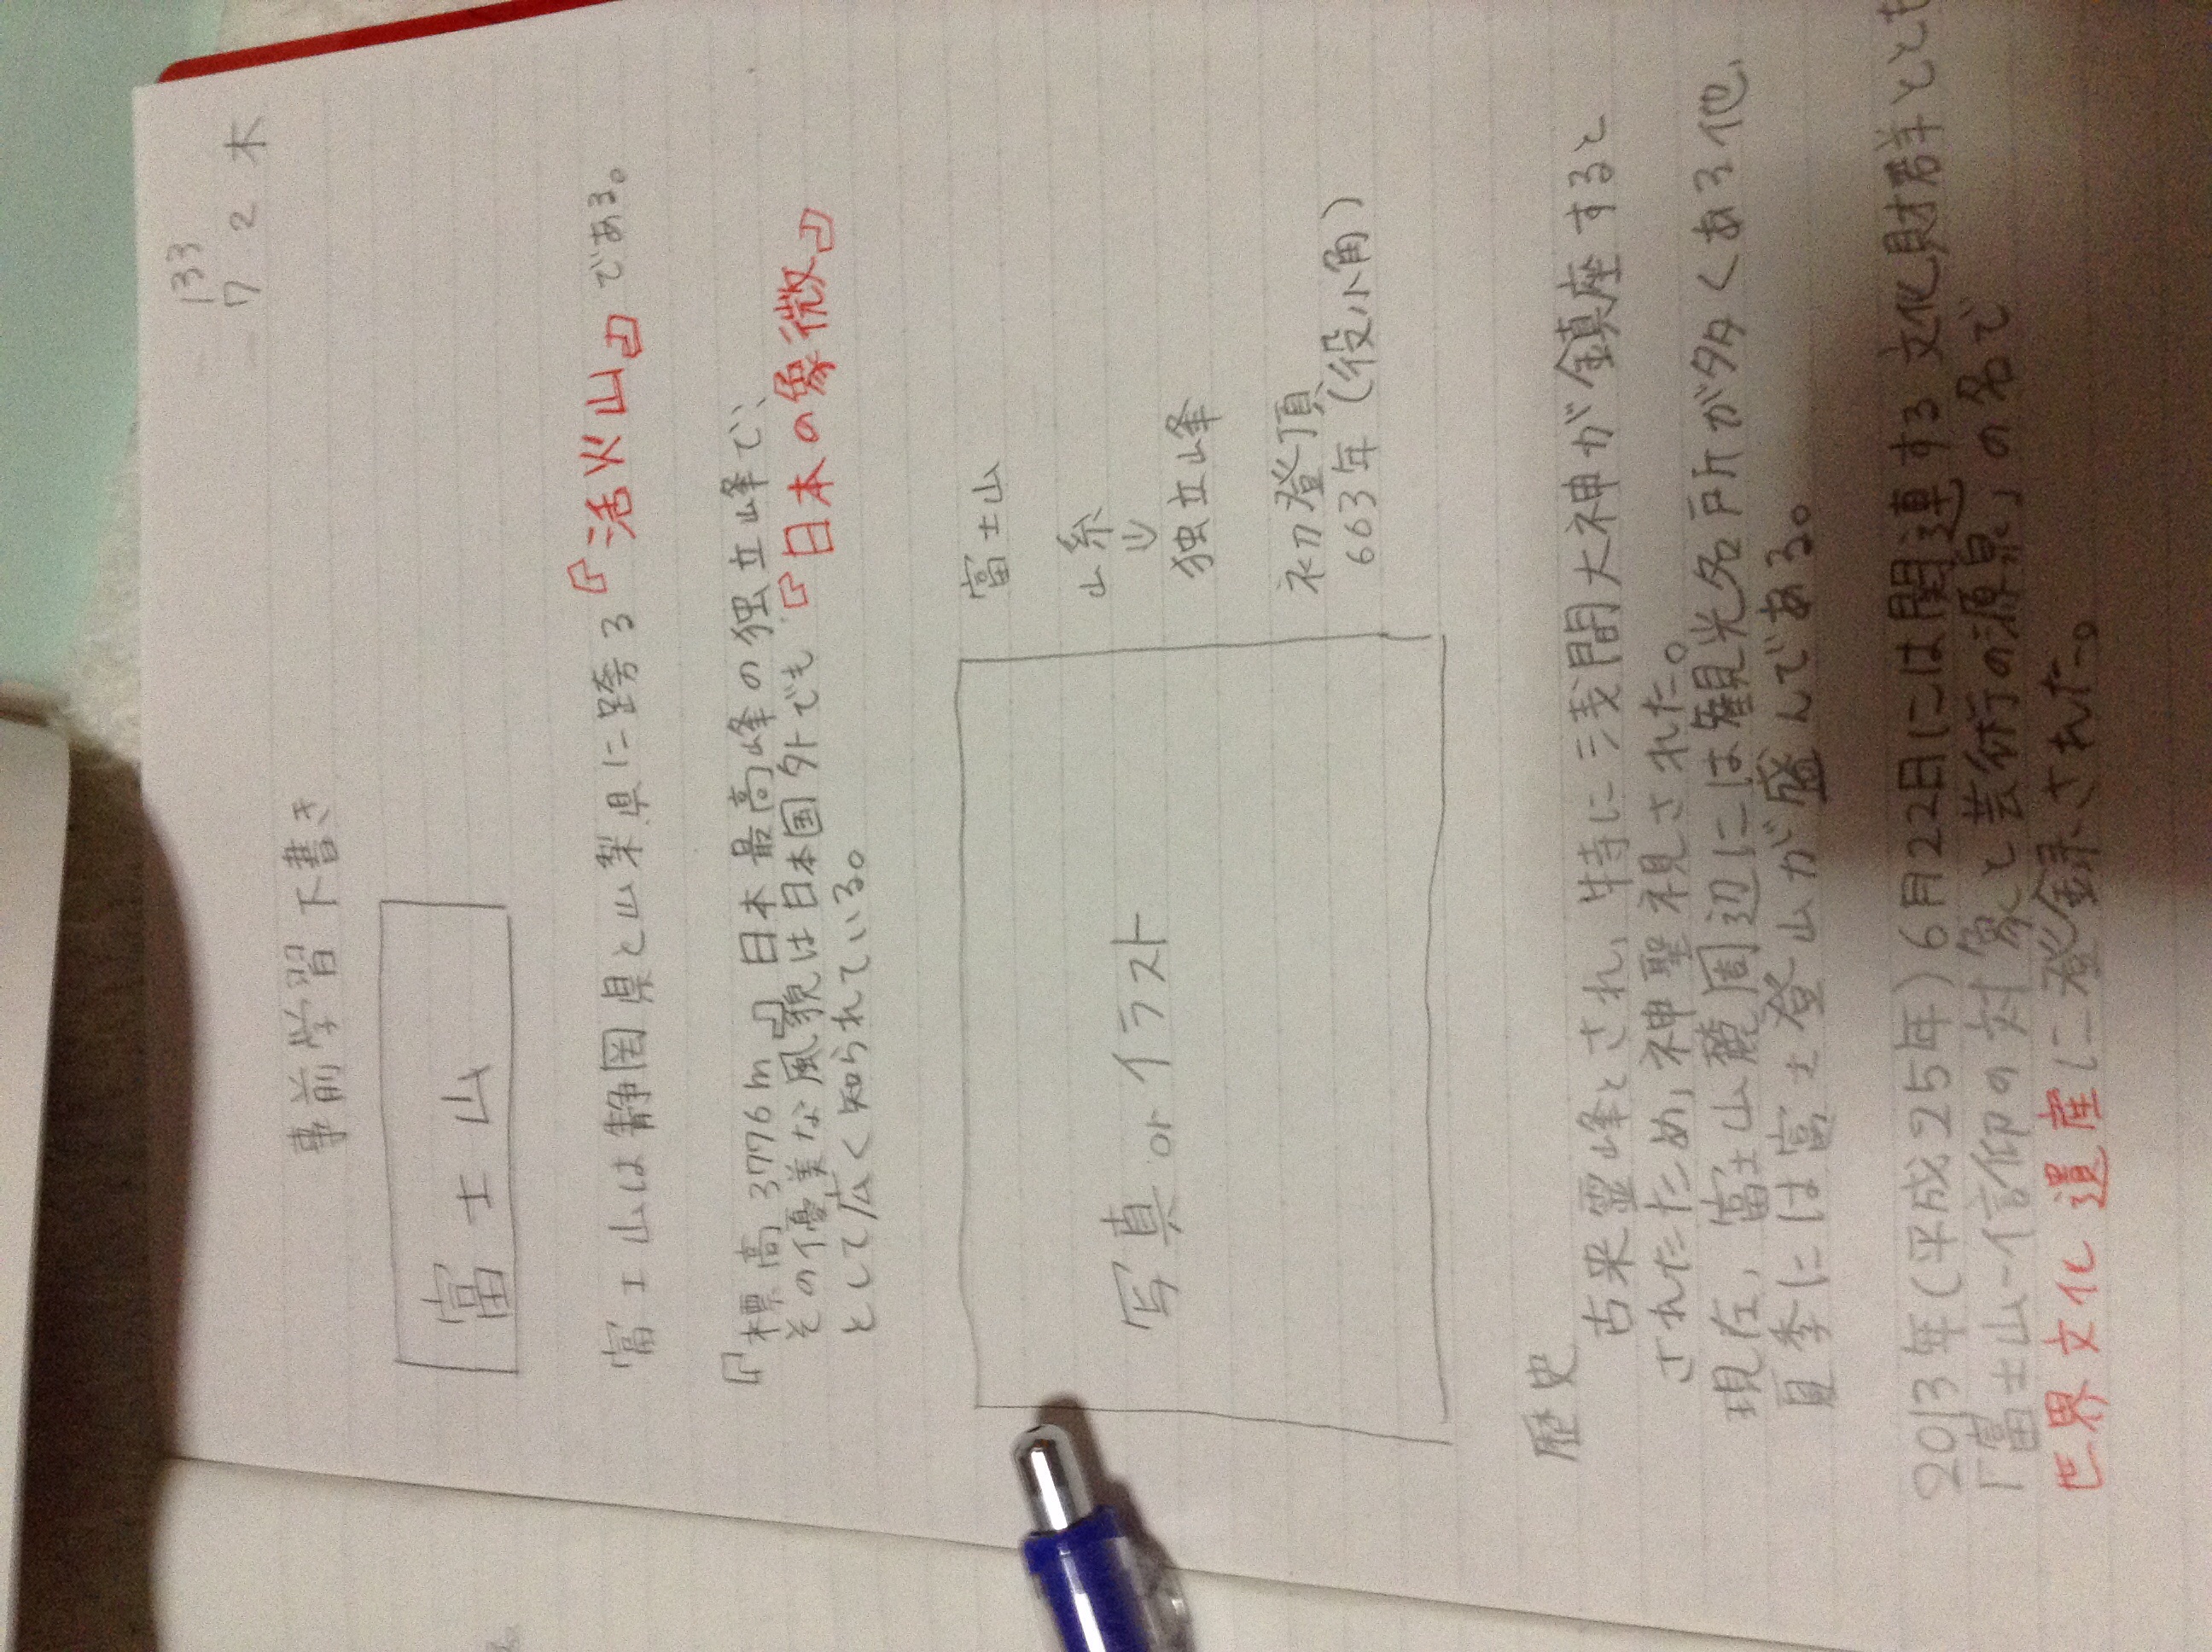 133
7 2 木
事前学習下書き
富士山
富士山は静岡県と山梨県に跨る『活火山』である。
『標高3776m』日本最高峰の独立峰で、
その優美な風貌は日本国外でも『日本の象徴』
として広く知られている。
写真orイラスト
富士山
山系
⇓
独立峰
初登頂
663年(役小角)
歴史
古来霊峰とされ、特に浅間大神が鎮座すると
されたため、神聖視された。
現在、富士山麓周辺には観光名所が多くある他、
夏季には富士登山が盛んである。
2013年(平成25年)6月22日には関連する文化財群とも
「富士山-信仰の対象と芸術の源泉」の名で
世界文化遺産に登録された。